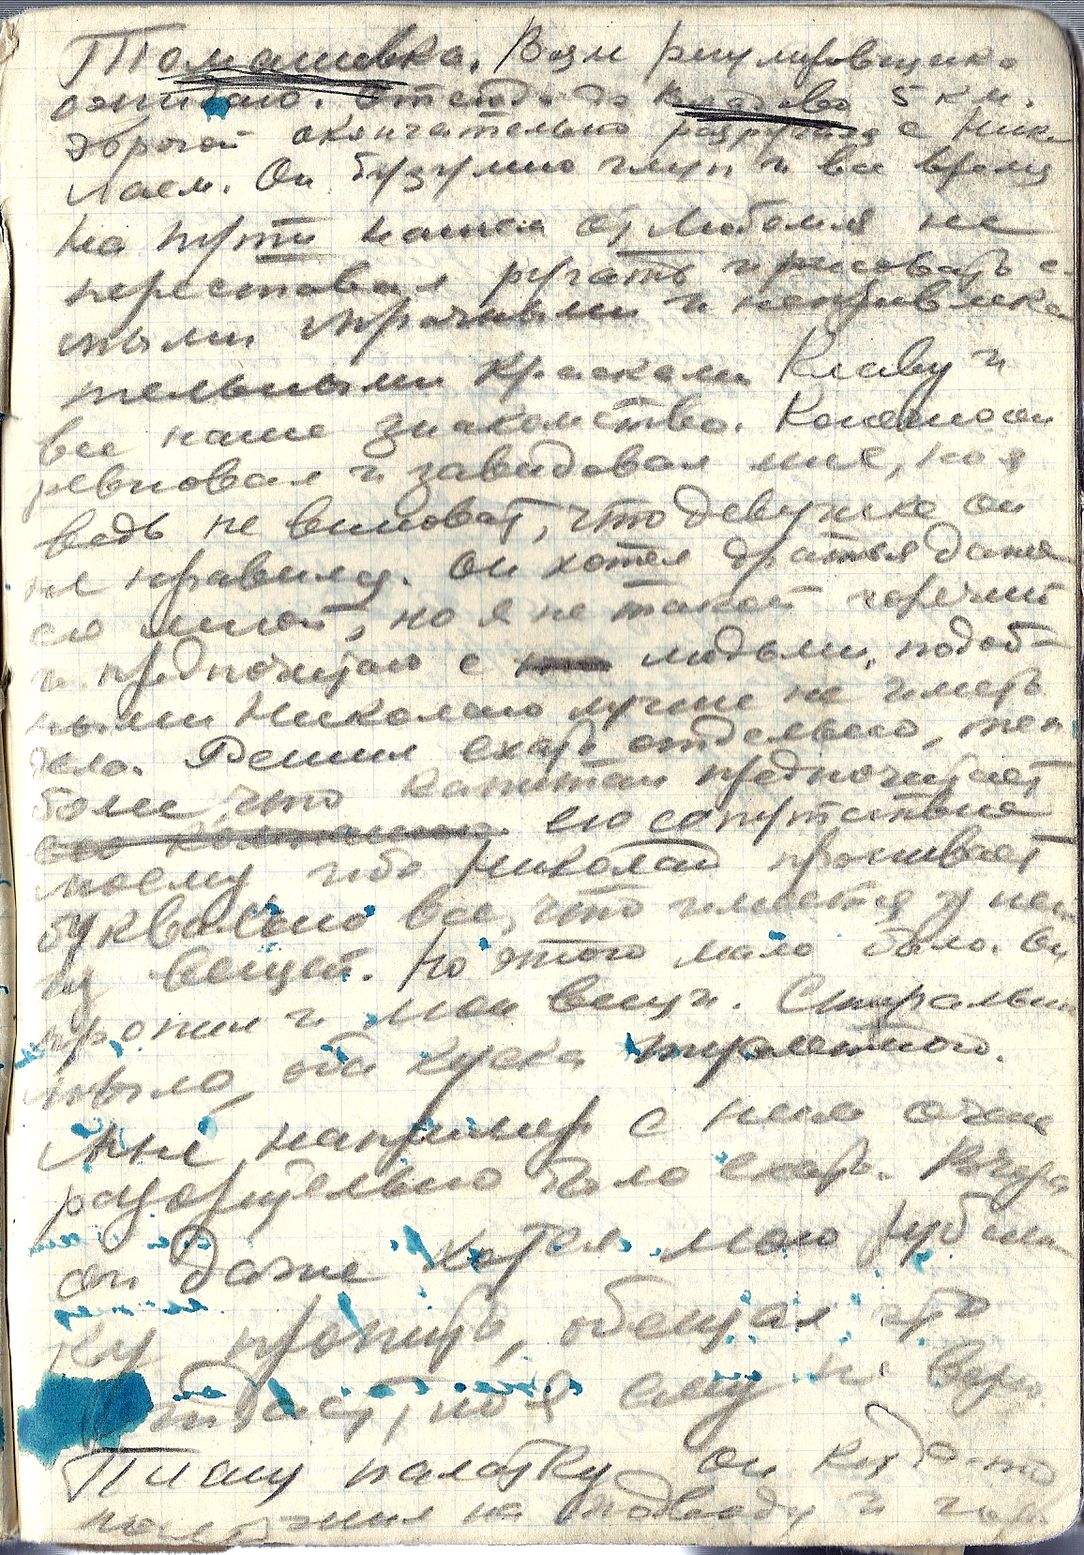 Томашовка. Возле регулировщика
ожидаю. Отсюда до 5 км.
Дорогой окончательно разругался с Нико
лаем. Он безумно глуп и все время
на пути нашем от Любомля не
переставал ругать и рисовать са
мыми мрачными и непривлека
тельными красками Клаву и
все наше знакомство. Конечно он
ревновал и завидовал мне, но я
ведь не виноват, что девушке он
не нравился. Он хотел драться даже
со мной, но я не такой горячий
и предпочитаю с людьми, подоб-
ными Николаю лучше не иметь
дела. Решил ехать отдельно, тем
более, что капитан предпочитает
его сопутствие
моему, ибо Николай пропивает
буквально все, что имеется у него
из вещей. Но этого мало было. Он
пропил и мои вещи. Стиральн
мыло, оба куска туалетного.
Мне например с ним очень
разорительно было ехать. Вчера
он даже хотел мою рубаш
ку пропить, обещая что
отдаст, но я ему не верю.
палатку он куда-то
на подводу и